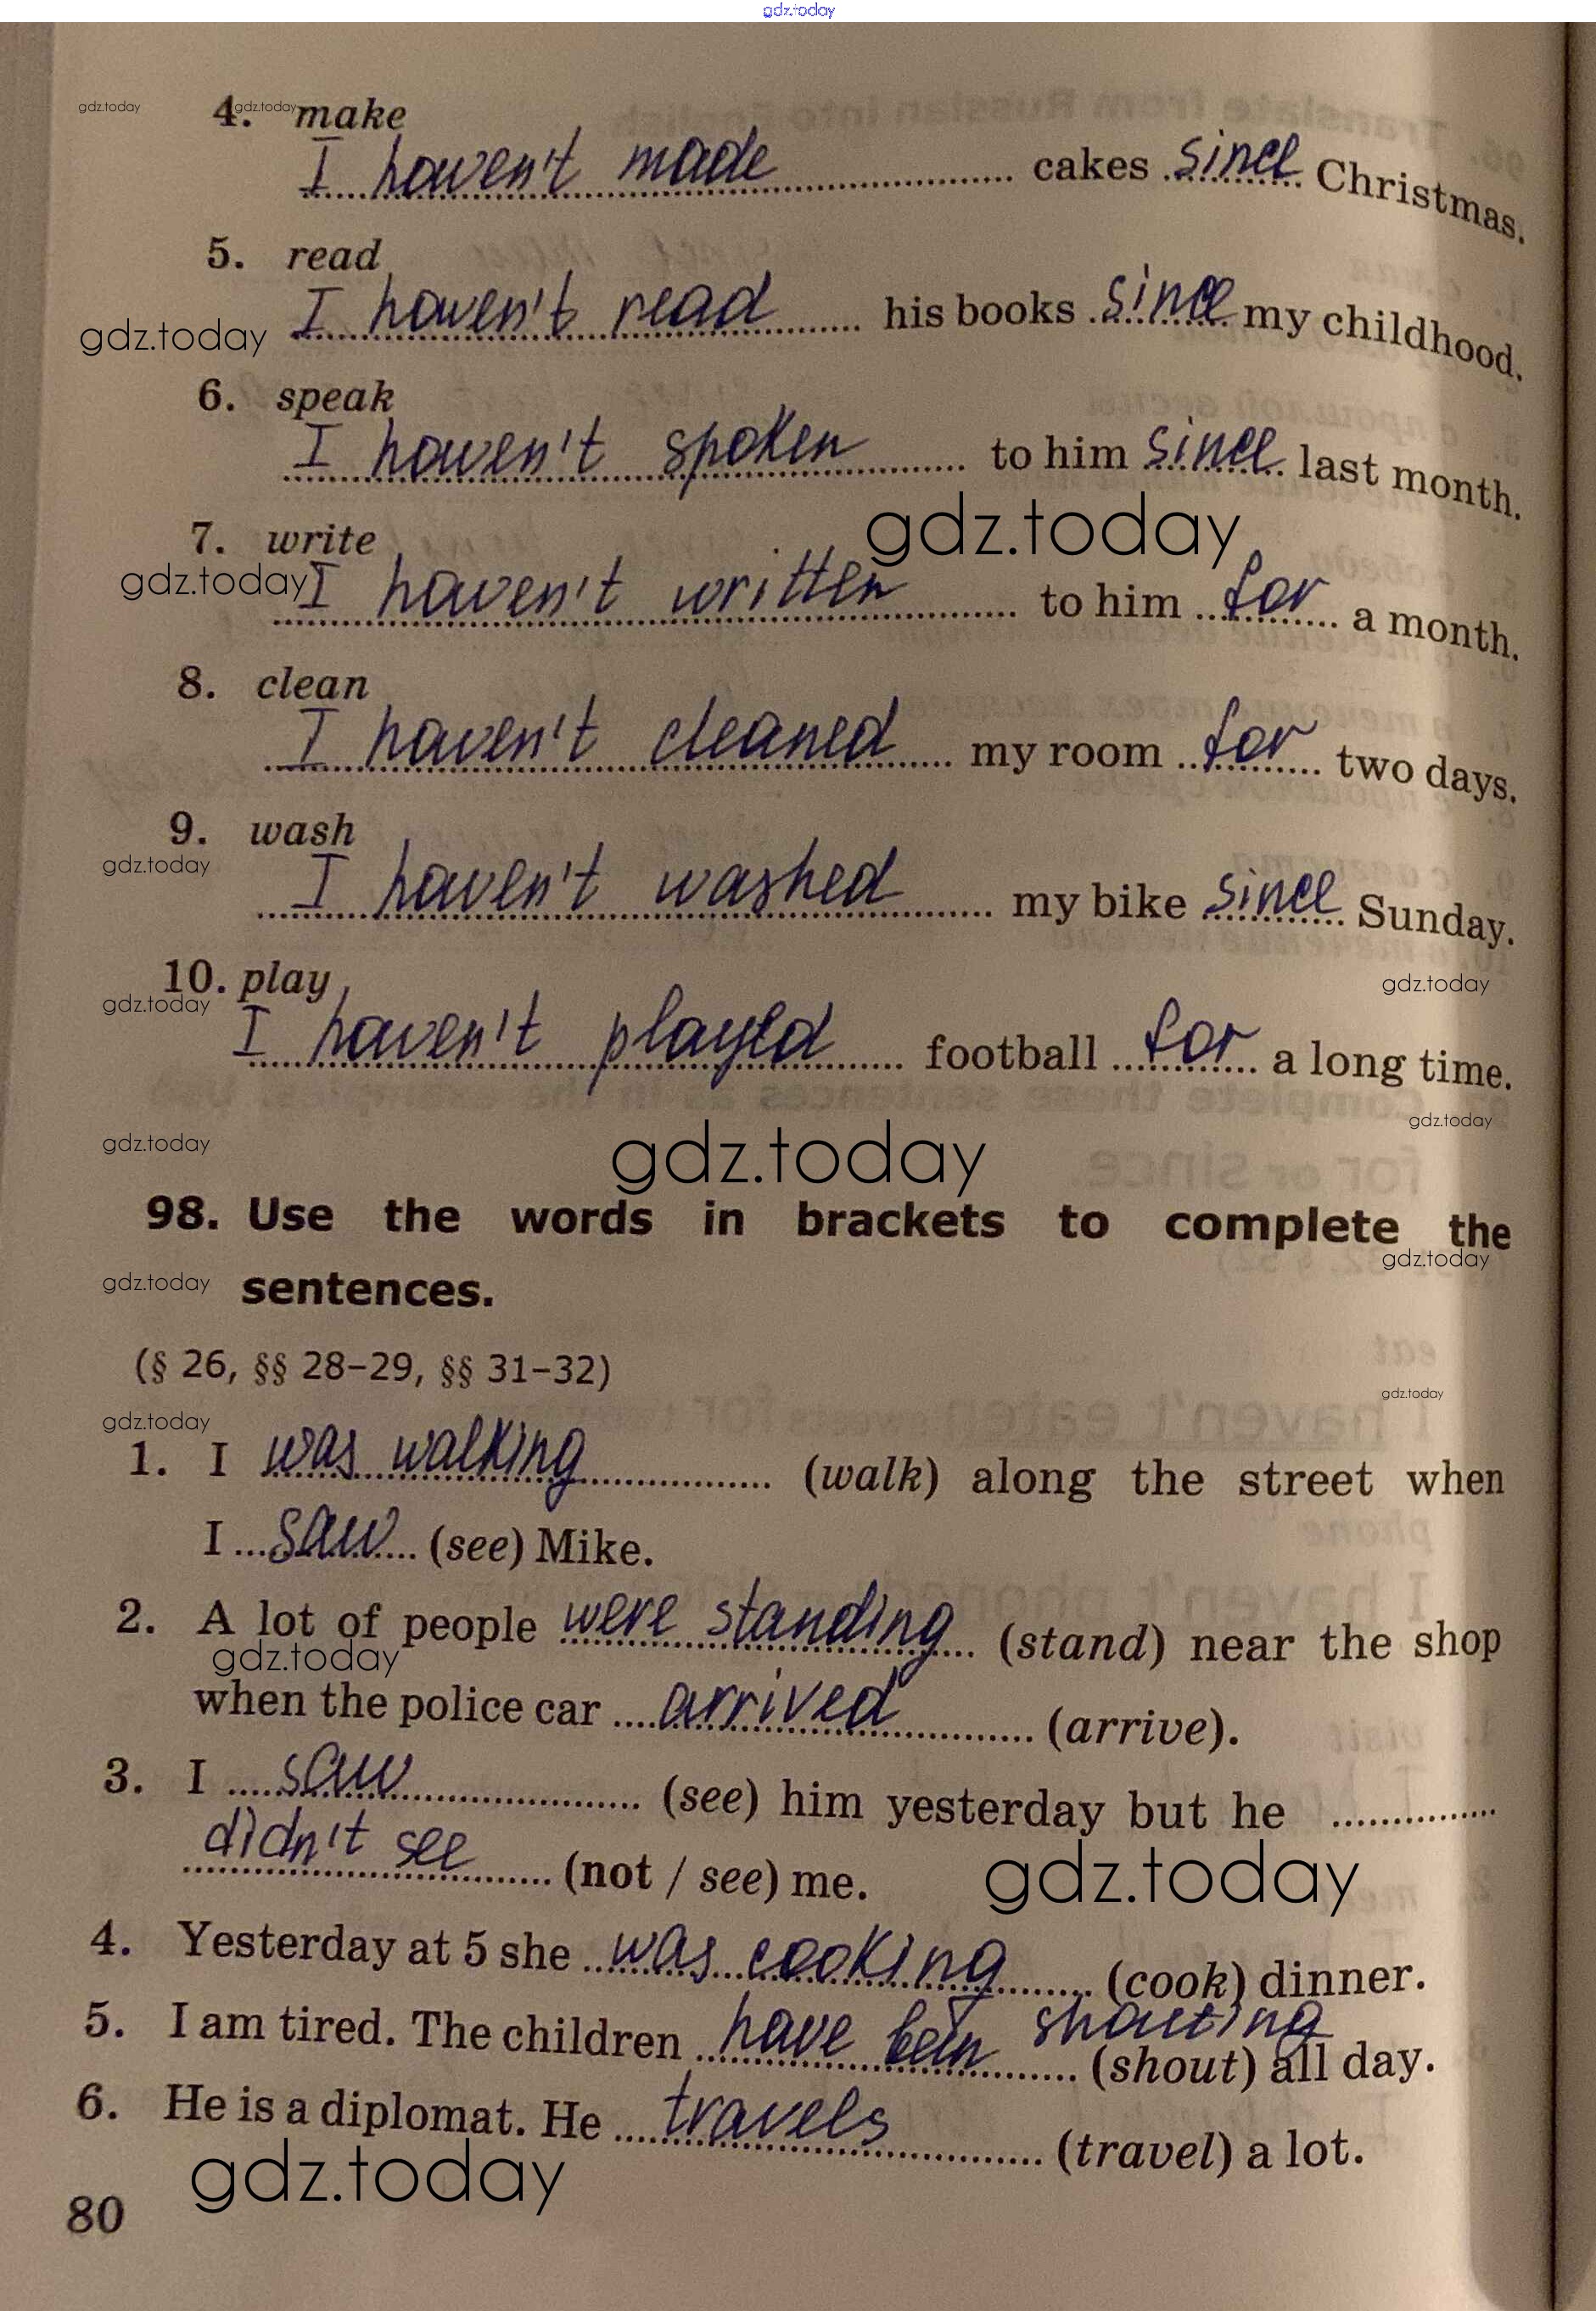 gdz.today
gdz.today
4. make gdz.today
I haven't made cakes since Christmas.
5. read
gdz.today I haven't read his books since my childhood.
6. speak
I haven't spoken to him since last month.
gdz.today
7. write
gdz.today I haven't written to him for a month.
8. clean
I haven't cleaned my room for two days.
9. wash
gdz.today I haven't washed my bike since Sunday.
10. play
gdz.today gdz.today
I haven't played football for a long time.
gdz.today gdz.today gdz.today
98. Use the words in brackets to complete the
gdz.today gdz.today
sentences.
(§ 26, §§ 28–29, §§ 31–32)
gdz.today gdz.today
1. I was walking (walk) along the street when
I saw (see) Mike.
2. A lot of people were standing (stand) near the shop
gdz.today
when the police car arrived (arrive).
3. I saw (see) him yesterday but he
didn't see (not / see) me.
gdz.today
4. Yesterday at 5 she was cooking (cook) dinner.
5. I am tired. The children have been shouting (shout) all day.
6. He is a diplomat. He travels (travel) a lot.
gdz.today
80